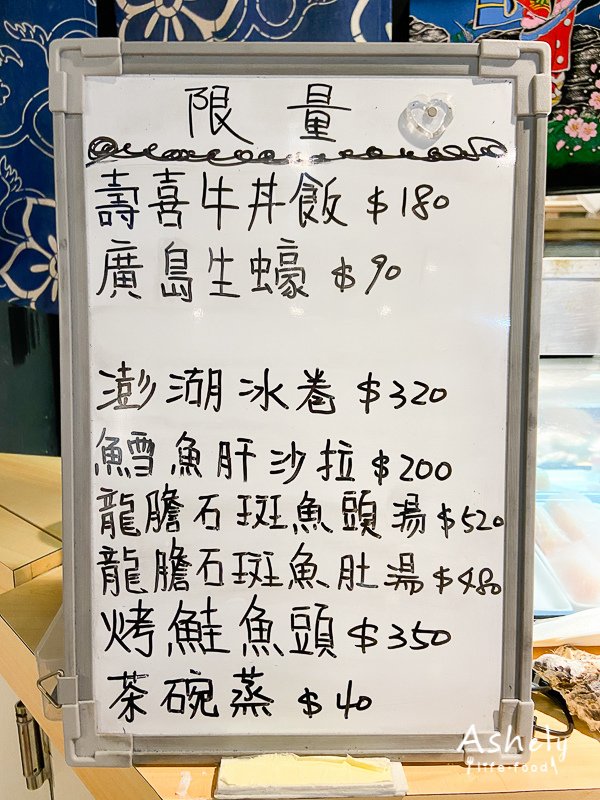 限量
壽喜牛丼飯 $180
廣島生蠔 $90
澎湖冰卷 $320
鱈魚肝沙拉 $200
龍膽石斑魚頭湯 $520
龍膽石斑魚肚湯 $480
烤鮭魚頭 $350
茶碗蒸 $40
Ashely
life.food